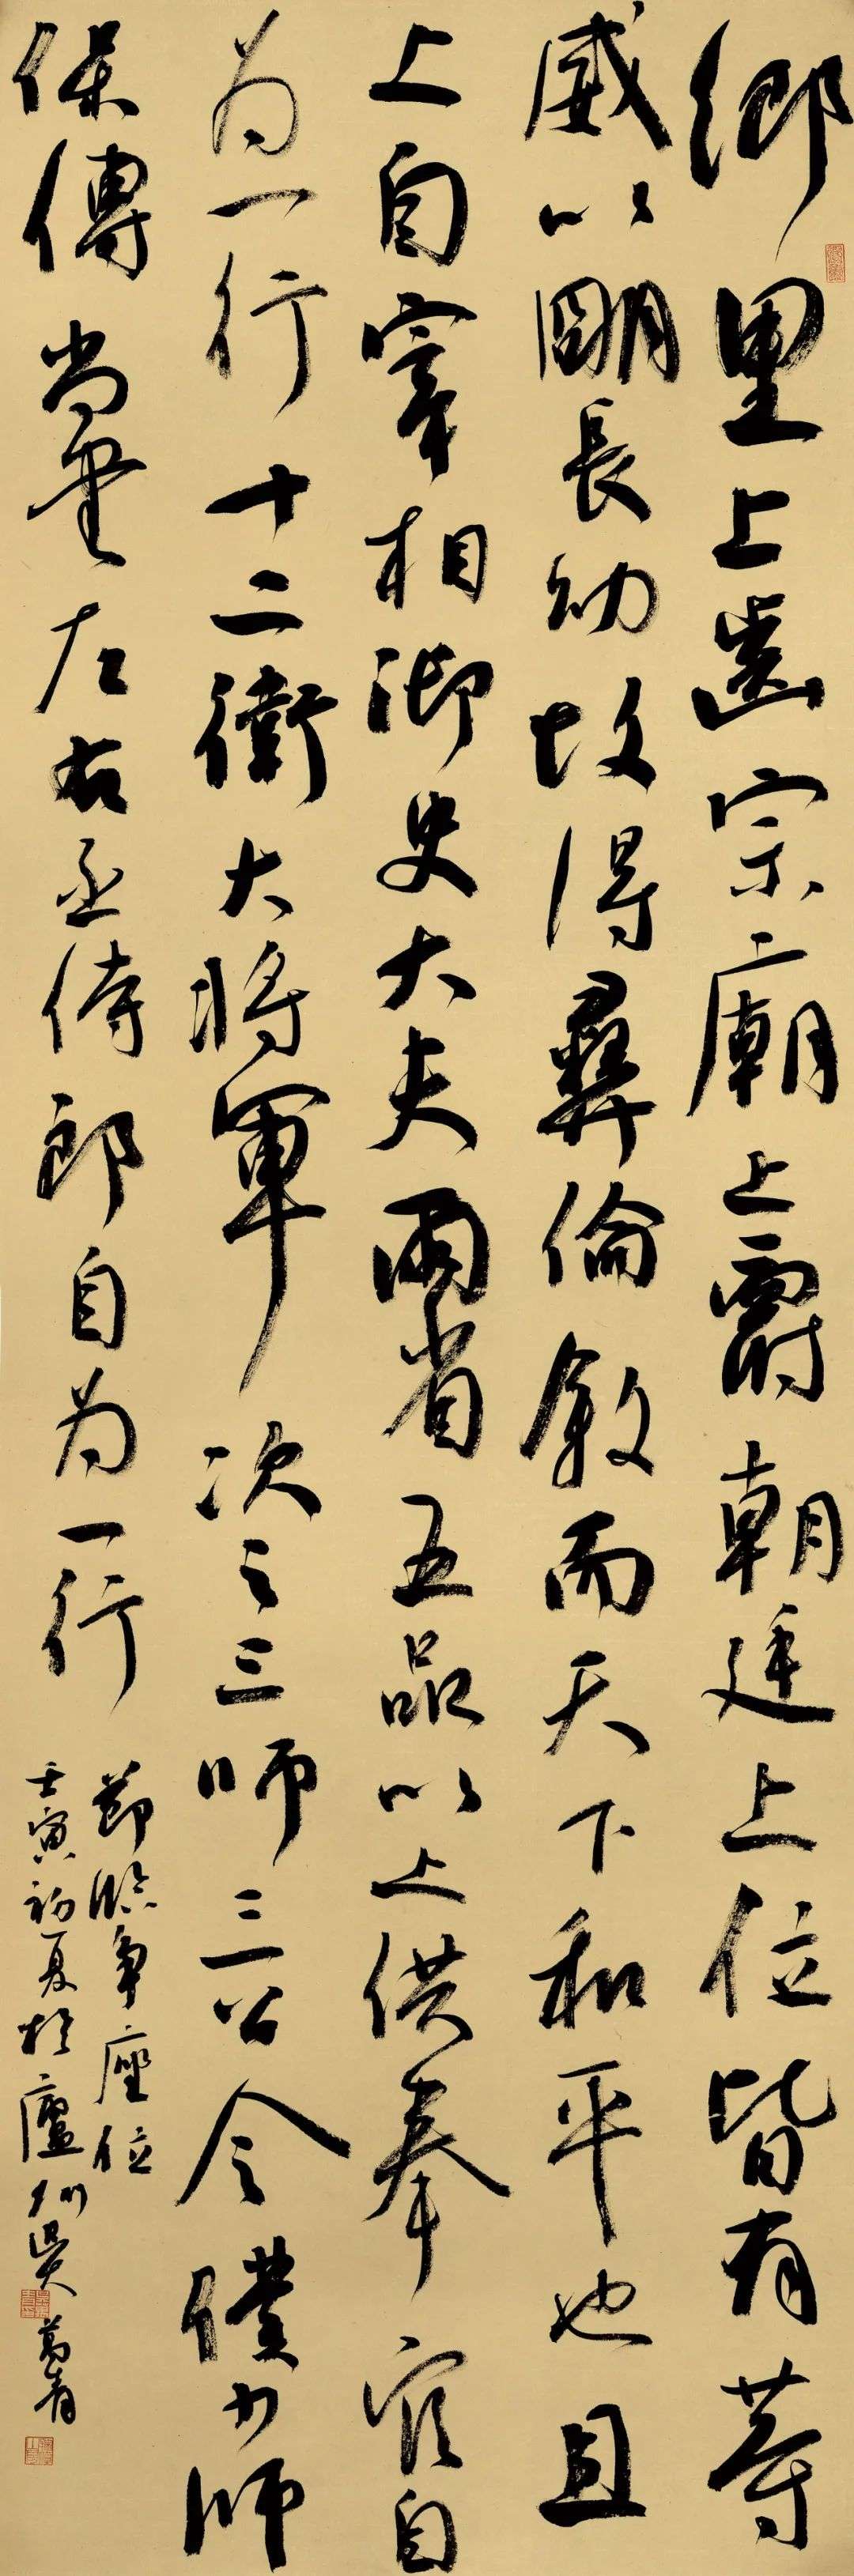 鄉里上齒宗廟上爵朝廷上位皆有等
威以朙長幼故得彝倫敘而天下和平也且
上自宰相御史大夫兩省五品以上供奉官自
為一行十二衛大將軍次之三師三公令僕少師
保傅尚書左右丞侍郎自為一行
節臨爭座位
壬寅初夏於廬州吳